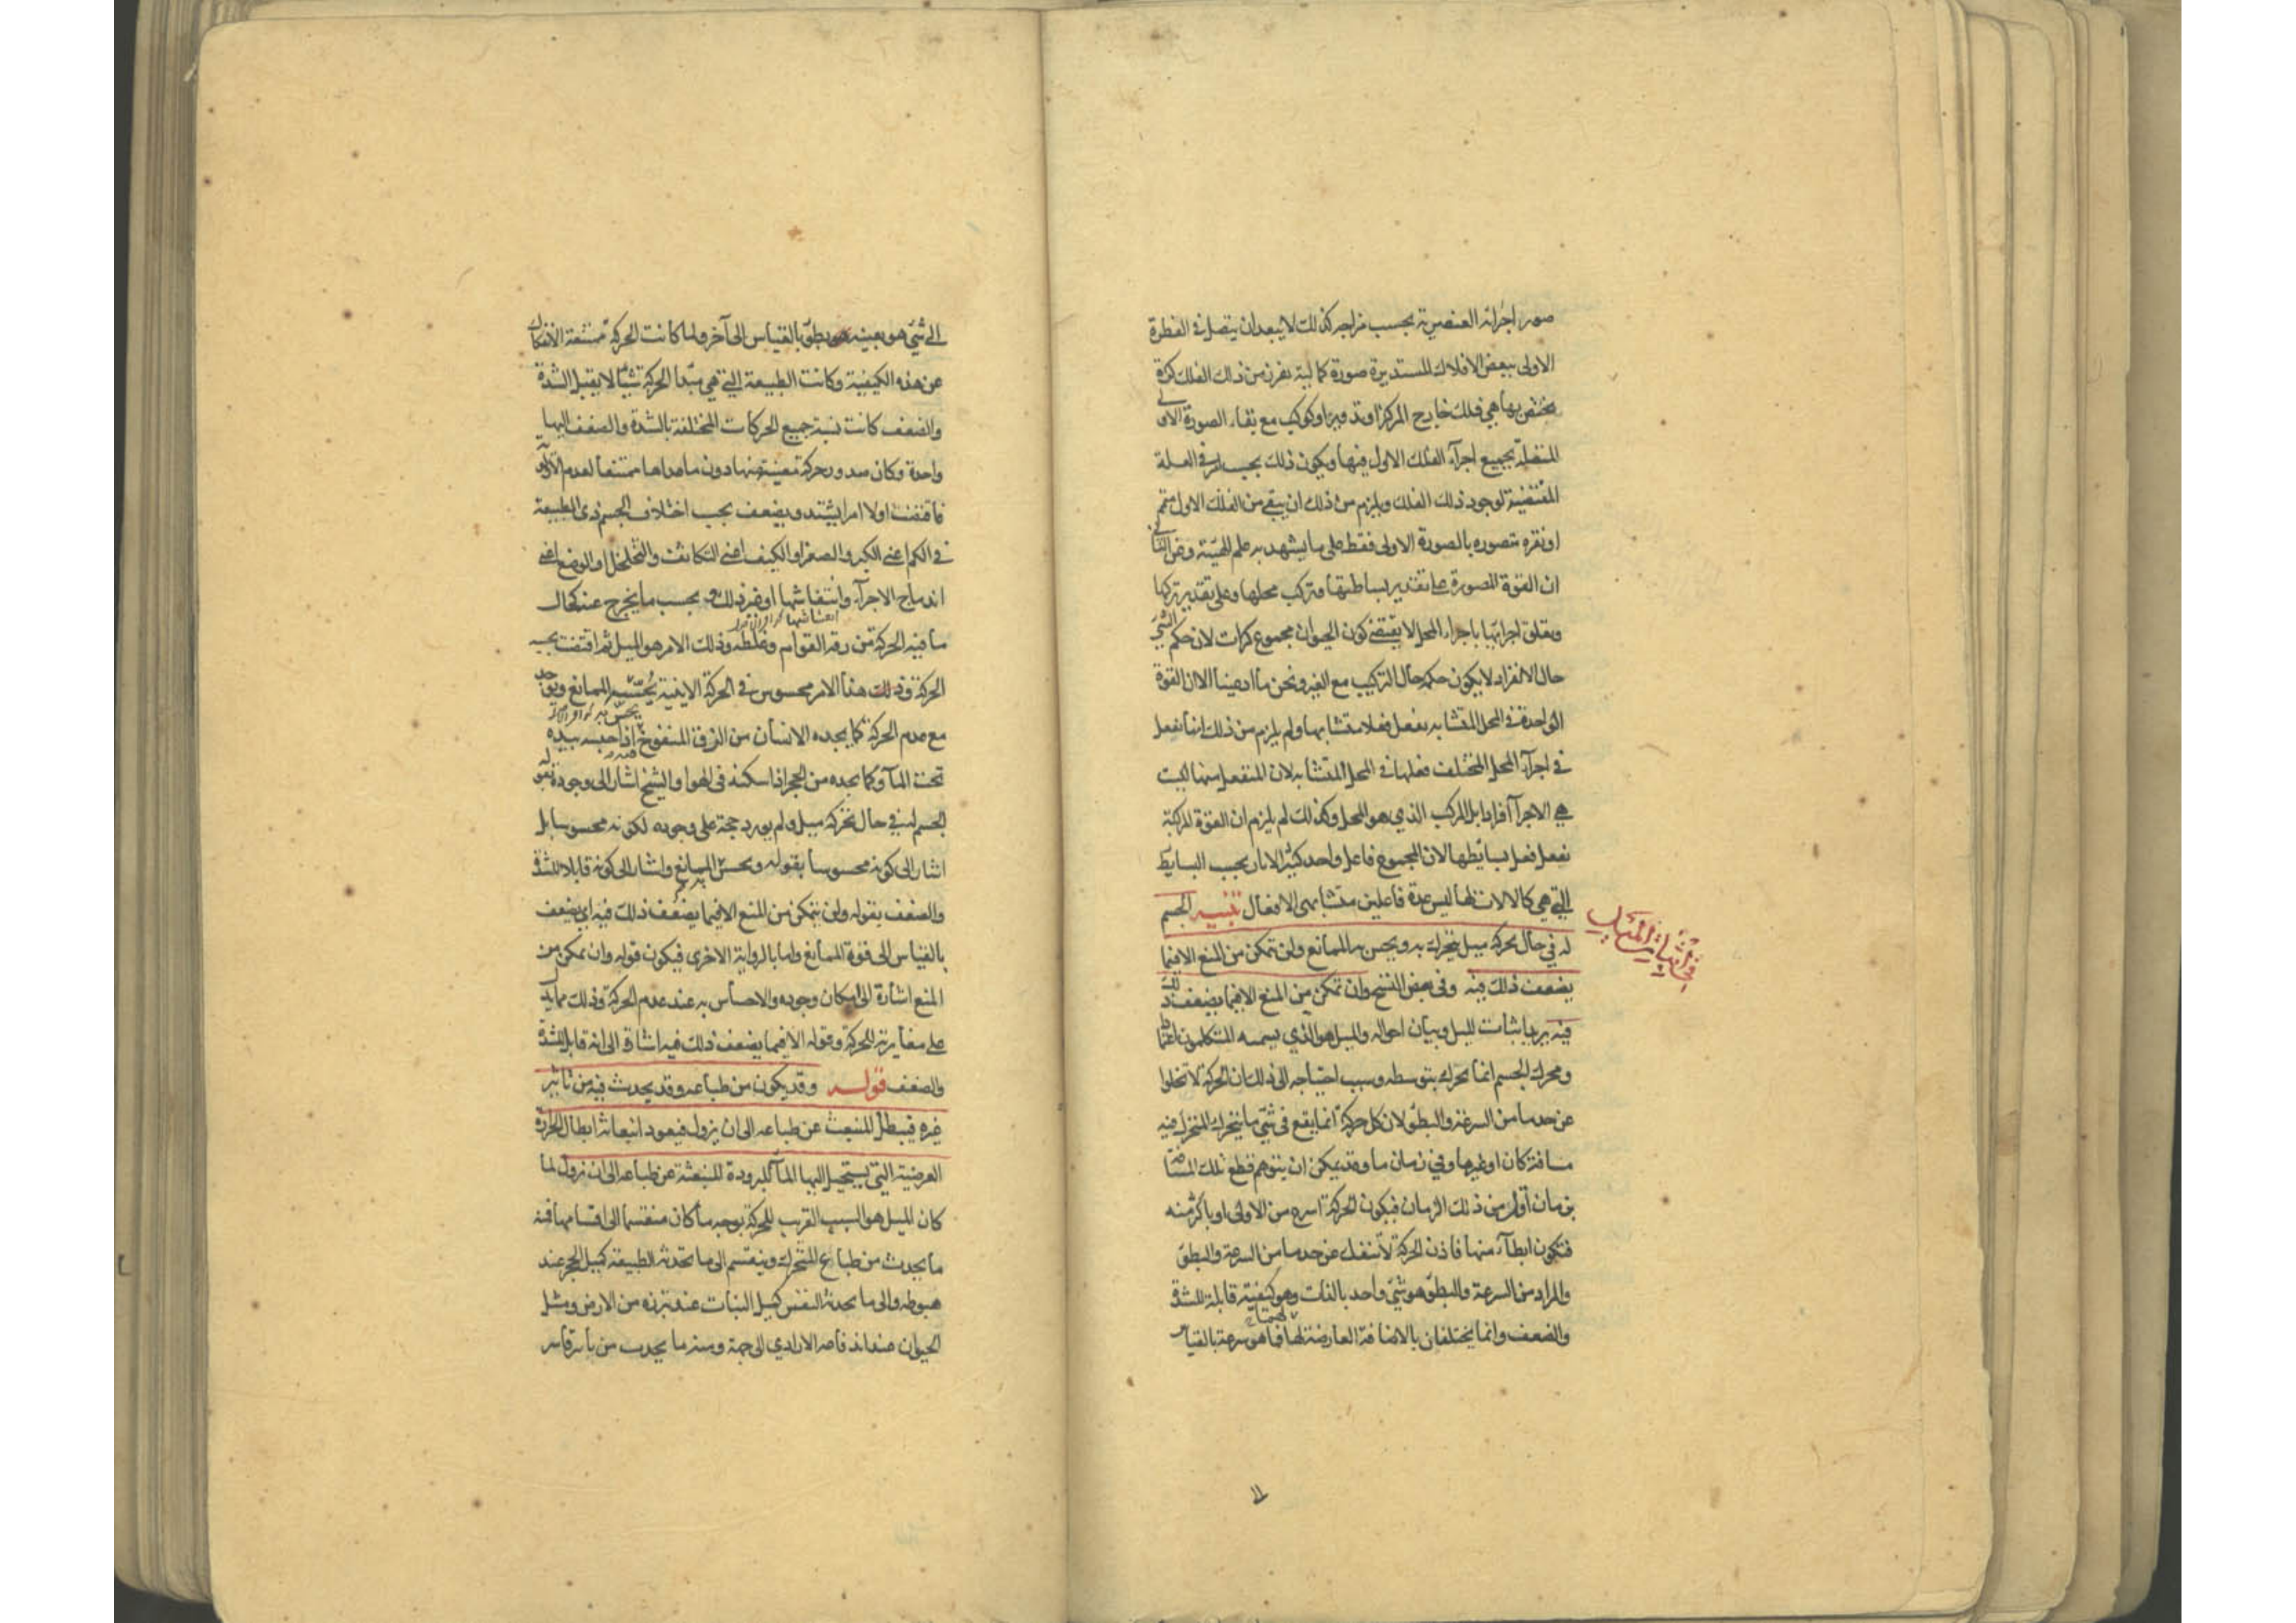 صور اجزائه العنصرية بحسب مزاجه كذلك لا يبعد ان يتصل في الفطرة
الاولى ببعض الافلاك المستديرة صورة كمالية تفرز من ذلك الفلك كرة
تختص بها هي فلك خارج المركز او تدوير او كوكب مع بقاء الصورة الاولى
المتصلة بجميع اجزاء الفلك الاول فيها ويكون ذلك بحسب امر في العلة
المقتضية لوجود ذلك الفلك ويلزم من ذلك ان يبقى من الفلك الاول متمم
او نقره متصوره بالصورة الاولى فقط على ما يشهد به علم الهيئة وعن الثاني
ان القوة المصورة على تقدير بساطتها وتركب محلها وعلى تقدير تركبها
وتعلق اجزائها باجزاء المحل لا يقتضي كون الحيوان مجموع كرات لان حكم الشئ
حال الانفراد لا يكون حكمه حال التركيب مع الغير ونحن ما ادعينا الا ان القوة
الواحدة في المحل المتشابه تفعل فعلا متشابها ولم يلزم من ذلك انها تفعل
في اجزاء المحل المختلف فعلها في المحل المتشابه لان المنفعل منها ليست
هي الاجزاء افرادا بل المركب الذي هو المحل وكذلك لم يلزم ان القوة المركبة
تفعل فعل بسائطها لان المجموع فاعل واحد كثير الاثار بحسب البسايط
التي هي كالالات لها ليس عدة فاعلين متشابهى الافعال تنبيه الجسم
له في حال تحركه ميل يتحرك به ويحس به الممانع ولن يتمكن من المنع الا فيما
في اثبات الميل
يضعف ذلك فيه وفي بعض النسخ وان تمكن من المنع الا فيما يضعف ذلك
فيه يريد اثبات الميل وبيان احواله والميل هو الذي يسميه المتكلمون اعتمادا
ومحرك الجسم انما يحرك بتوسطه وسبب احتياجه الى ذلك ان الحركة لا تخلوا
عن حد ما من السرعة والبطؤ لان كل حركة انما يقع في شئ ما يتحرك المتحرك فيه
مسافة كان او غيرها وفي زمان ما وقد يمكن ان يتوهم قطع تلك المسافة
بزمان اقل من ذلك الزمان فيكون الحركة اسرع من الاولى او باكثر منه
فتكون ابطأ منها فاذن الحركة لا تنفك عن حد ما من السرعة والبطؤ
والمراد من السرعة والبطؤ هو شئ واحد بالذات وهو كيفية قابلة للشدة
والضعف وانما يختلفان بالاضافة العارضة لهما فما هو سرعة بالقياس
الى شئ هو بعينه بطؤ بالقياس الى آخر ولما كانت الحركة ممتنعة الانفكاك
عن هذه الكيفية وكانت الطبيعة التي هي مبدأ الحركة شيئا لا يقبل الشدة
والضعف كانت نسبة جميع الحركات المختلفة بالشدة والضعف اليها
واحدة وكان صدور حركة معينة منها دون ما عداها ممتنعا لعدم الاولوية
فاقتضت اولا امرا يشتد ويضعف بحسب اختلاف الجسم ذى الطبيعة
في الكم اعني الكبر والصغر او الكيف اعني التكاثف والتخلخل او الوضع اعني
اندماج الاجزاء وانتفاشها او غير ذلك وبحسب ما يخرج عنه كحال
ما فيه الحركة من رقة القوام وغلظه وذلك الامر هو الميل ثم اقتضت بحسبه
الحركة وذلك هذا الامر محسوس في الحركة الاينية يحس به الممانع ويوجد
مع عدم الحركة كما يجده الانسان من الزق المنفوخ اذا حبسه بيده
تحت المآء وكما يجده من الحجر اذا اسكنه في الهوا والشيخ اشار الى وجوده بقوله
الجسم له في حال تحركه ميل ولم يورد حجة على وجوده لكونه محسوسا بل
اشار الى كونه محسوسا بقوله ويحس به الممانع واشار الى كونه قابلا للشدة
والضعف بقوله ولن يتمكن من المنع الا فيما يضعف ذلك فيه اي يضعف
بالقياس الى قوة الممانع واما بالرواية الاخرى فيكون قوله وان تمكن من
المنع اشارة الى امكان وجوده والاحساس به عند عدم الحركة وذلك مما يدل
على مغايرته للحركة وقوله الا فيما يضعف ذلك فيه اشارة الى انه قابل للشدة
والضعف قوله وقد يكون من طباعه وقد يحدث فيه من تاثير
غيره فيبطل المنبعث عن طباعه الى ان يزول فيعود انبعاثه ابطال الحرارة
العرضية التي يستحيل اليها المآء للبرودة المنبعثة عن طباعه الى ان تزول لما
كان الميل هو السبب القريب للحركة بوجه ما كان منقسما الى اقسامها فمنه
ما يحدث من طباع المتحرك وينقسم الى ما تحدثه الطبيعة كميل الحجر عند
هبوطه والى ما تحدثه النفس كميل النبات عند تبرزه من الارض وميل
الحيوان عند اندفاعه الارادي الى جهة ومنه ما يحدث من تاثير قاسر